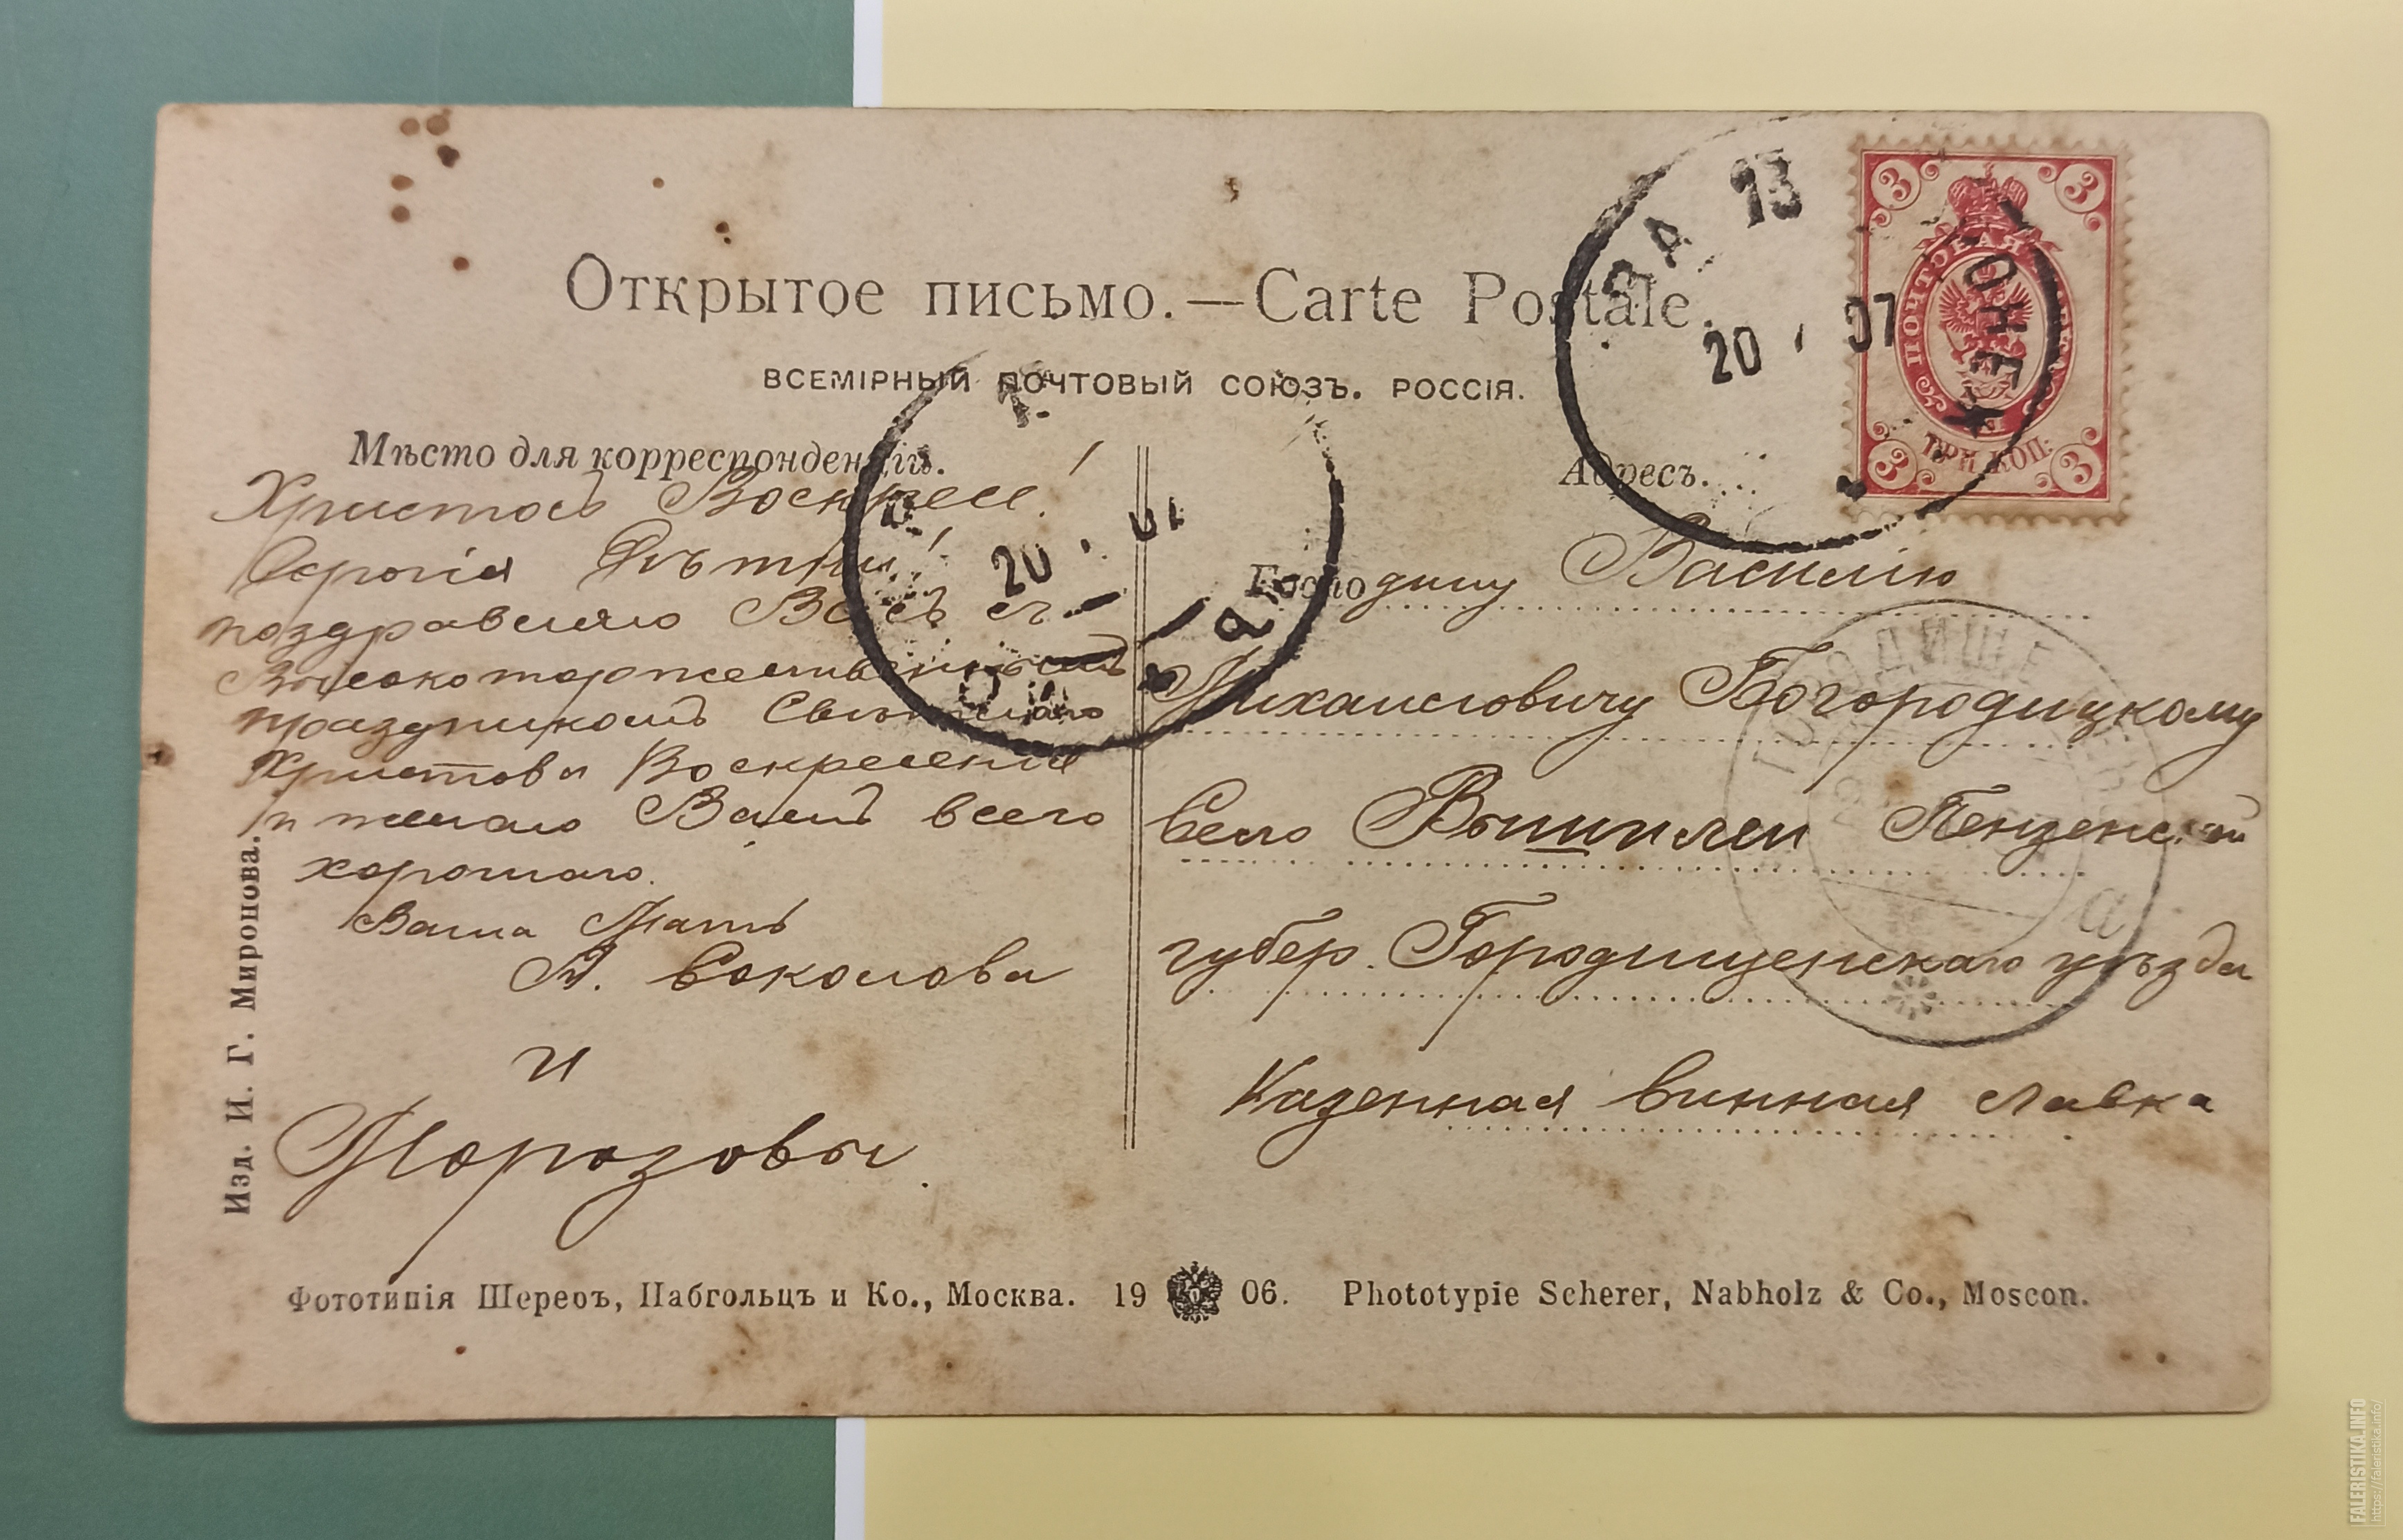 Открытое письмо.—Carte Postale.
ВСЕМІРНЫЙ ПОЧТОВЫЙ СОЮЗЪ. РОССІЯ.
Мѣсто для корреспонденціи.
Христосъ Воскресе!
Дѣти!
поздравляю Васъ съ
Высокоторжественнымъ
праздникомъ Свѣтлаго
Христова Воскресенія
и желаю Вамъ всего
хорошаго.
Ваша Мать
А. Соколова
и
Морозовы.
Адресъ.
Господину Василію
Михаиловичу Богородицкому
Село Вышилеи Пензенской
губер. Городищенскаго уѣзда
Казенная винная лавка
ВА 13
20 07
20
ГОРОДИЩЕ
а
ПОЧТОВАЯ
3 3
3 3
ТРИ КОП.
Изд. И. Г. Миронова.
Фототипія Шереръ, Набгольцъ и Ко., Москва. 19 06. Phototypie Scherer, Nabholz & Co., Moscou.
FALERISTIKA.INFO
https://faleristika.info/